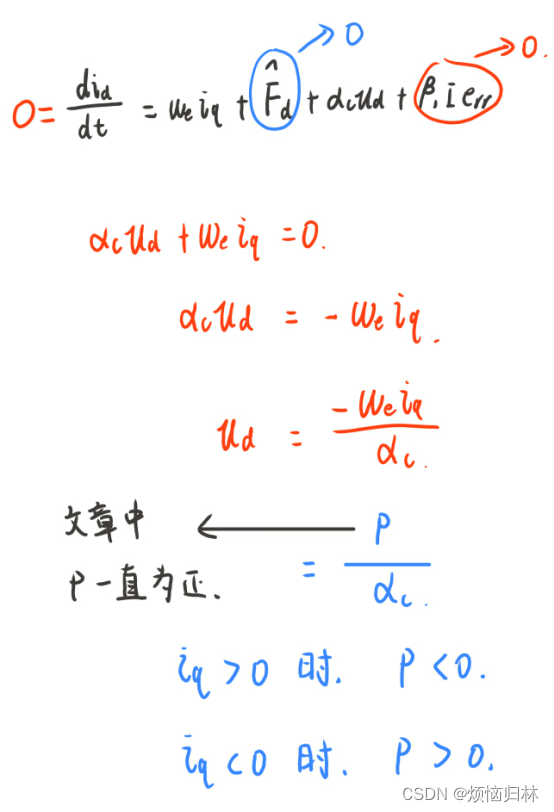 →0
→0.
0 = did/dt = ωe iq + F̂d + αc ud + β1 ierr
αc ud + ωe iq = 0.
αc ud = - ωe iq.
ud = -ωe iq / αc.
文章中 ← P
P一直为正. = P / αc.
iq > 0 时. P < 0.
iq < 0 时. P > 0.
CSDN @烦恼归林